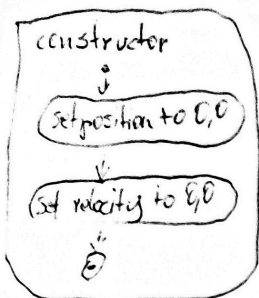 constructor
set position to 0,0
set velocity to 0,0